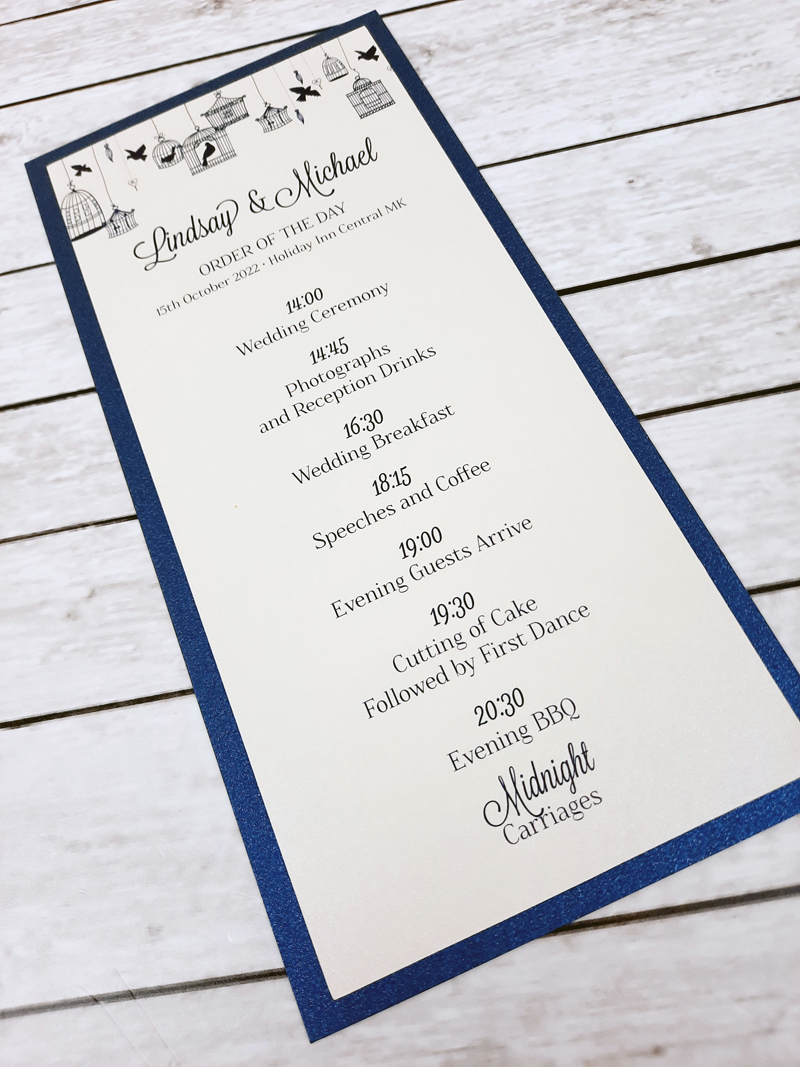 Lindsay & Michael
ORDER OF THE DAY
15th October 2022 • Holiday Inn Central MK
14:00
Wedding Ceremony
14:45
Photographs
and Reception Drinks
16:30
Wedding Breakfast
18:15
Speeches and Coffee
19:00
Evening Guests Arrive
19:30
Cutting of Cake
Followed by First Dance
20:30
Evening BBQ
Midnight
Carriages